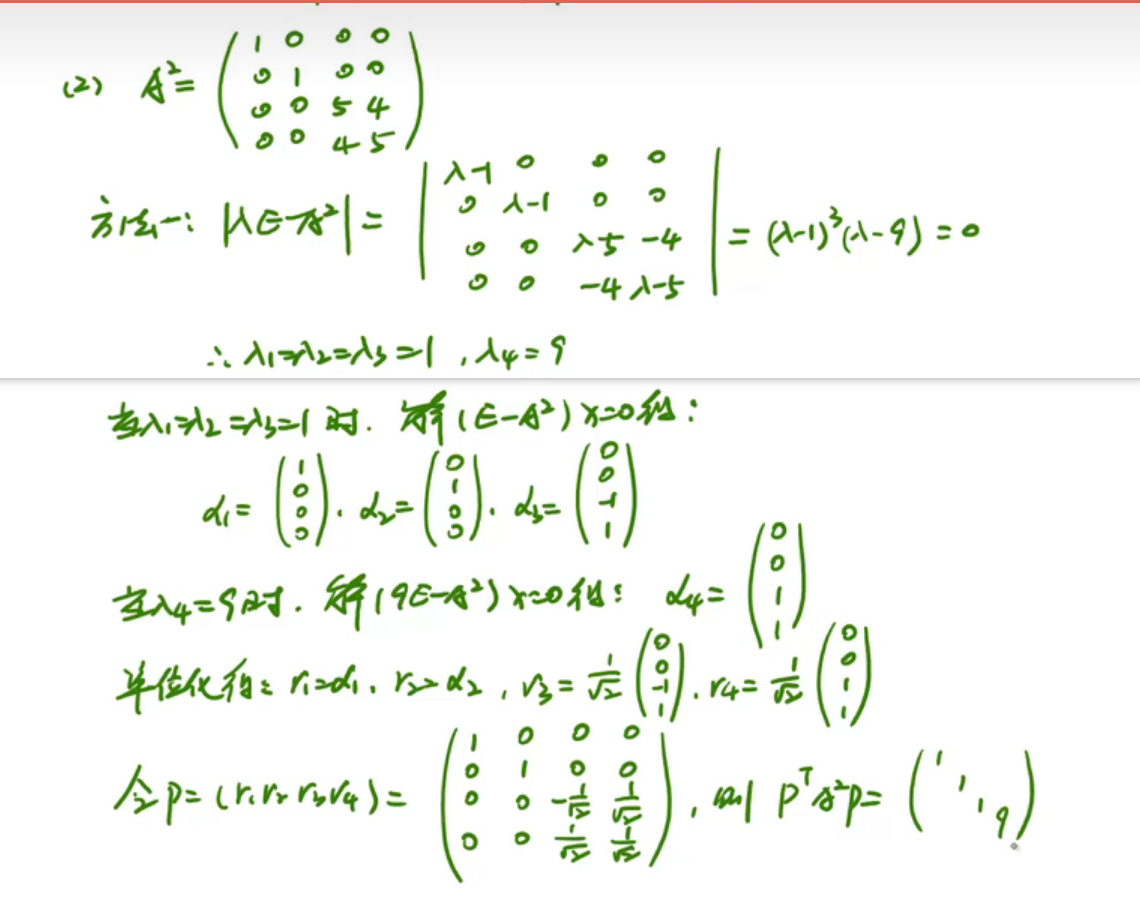 (2) A²= ( 1 0 0 0 ; 0 1 0 0 ; 0 0 5 4 ; 0 0 4 5 )
方法一: |λE-A²| = | λ-1 0 0 0 ; 0 λ-1 0 0 ; 0 0 λ-5 -4 ; 0 0 -4 λ-5 | = (λ-1)³(λ-9) = 0
∴ λ₁=λ₂=λ₃=1 , λ₄=9
当λ₁=λ₂=λ₃=1时. 解(E-A²)x=0得:
α₁= ( 1 ; 0 ; 0 ; 0 ). α₂= ( 0 ; 1 ; 0 ; 0 ). α₃= ( 0 ; 0 ; -1 ; 1 )
当λ₄=9时. 解(9E-A²)x=0得: α₄= ( 0 ; 0 ; 1 ; 1 )
单位化得: r₁=α₁. r₂=α₂ , r₃= 1/√2 ( 0 ; 0 ; -1 ; 1 ). r₄= 1/√2 ( 0 ; 0 ; 1 ; 1 )
令P=(r₁ r₂ r₃ r₄)= ( 1 0 0 0 ; 0 1 0 0 ; 0 0 -1/√2 1/√2 ; 0 0 1/√2 1/√2 ) , 则 PᵀA²P= ( 1 1 1 9 )